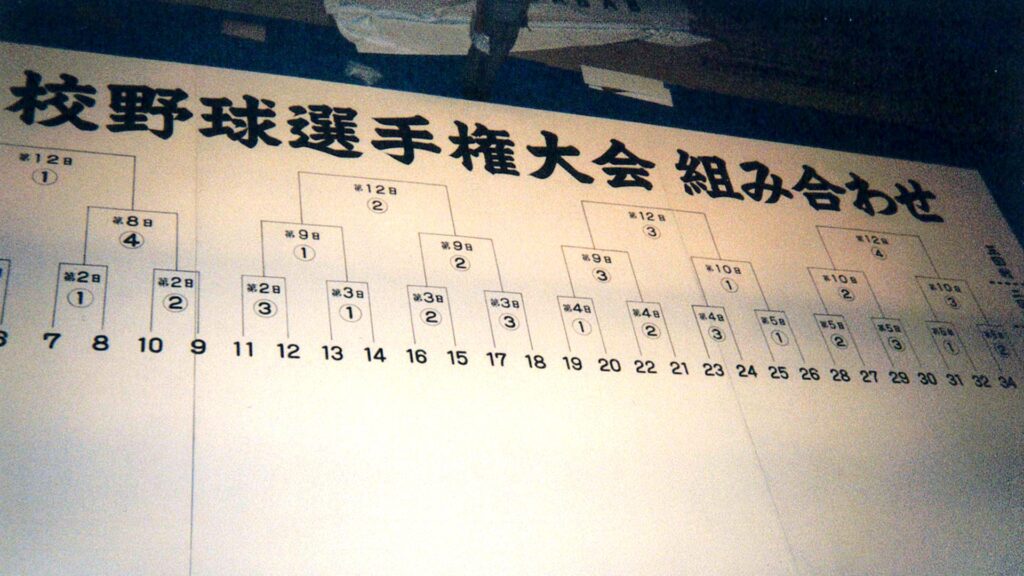 校野球選手権大会 組み合わせ
第12日 第12日 第12日 第12日
① ② ③ ④
第8日 第9日 第9日 第9日 第10日 第10日 第10日
④ ① ② ③ ① ② ③
第2日 第2日 第2日 第3日 第3日 第3日 第4日 第4日 第4日 第5日 第5日 第5日
① ② ③ ① ② ③ ① ② ③ ① ② ③ ① ②
7 8 10 9 11 12 13 14 16 15 17 18 19 20 22 21 23 24 25 26 28 27 29 30 31 32 34